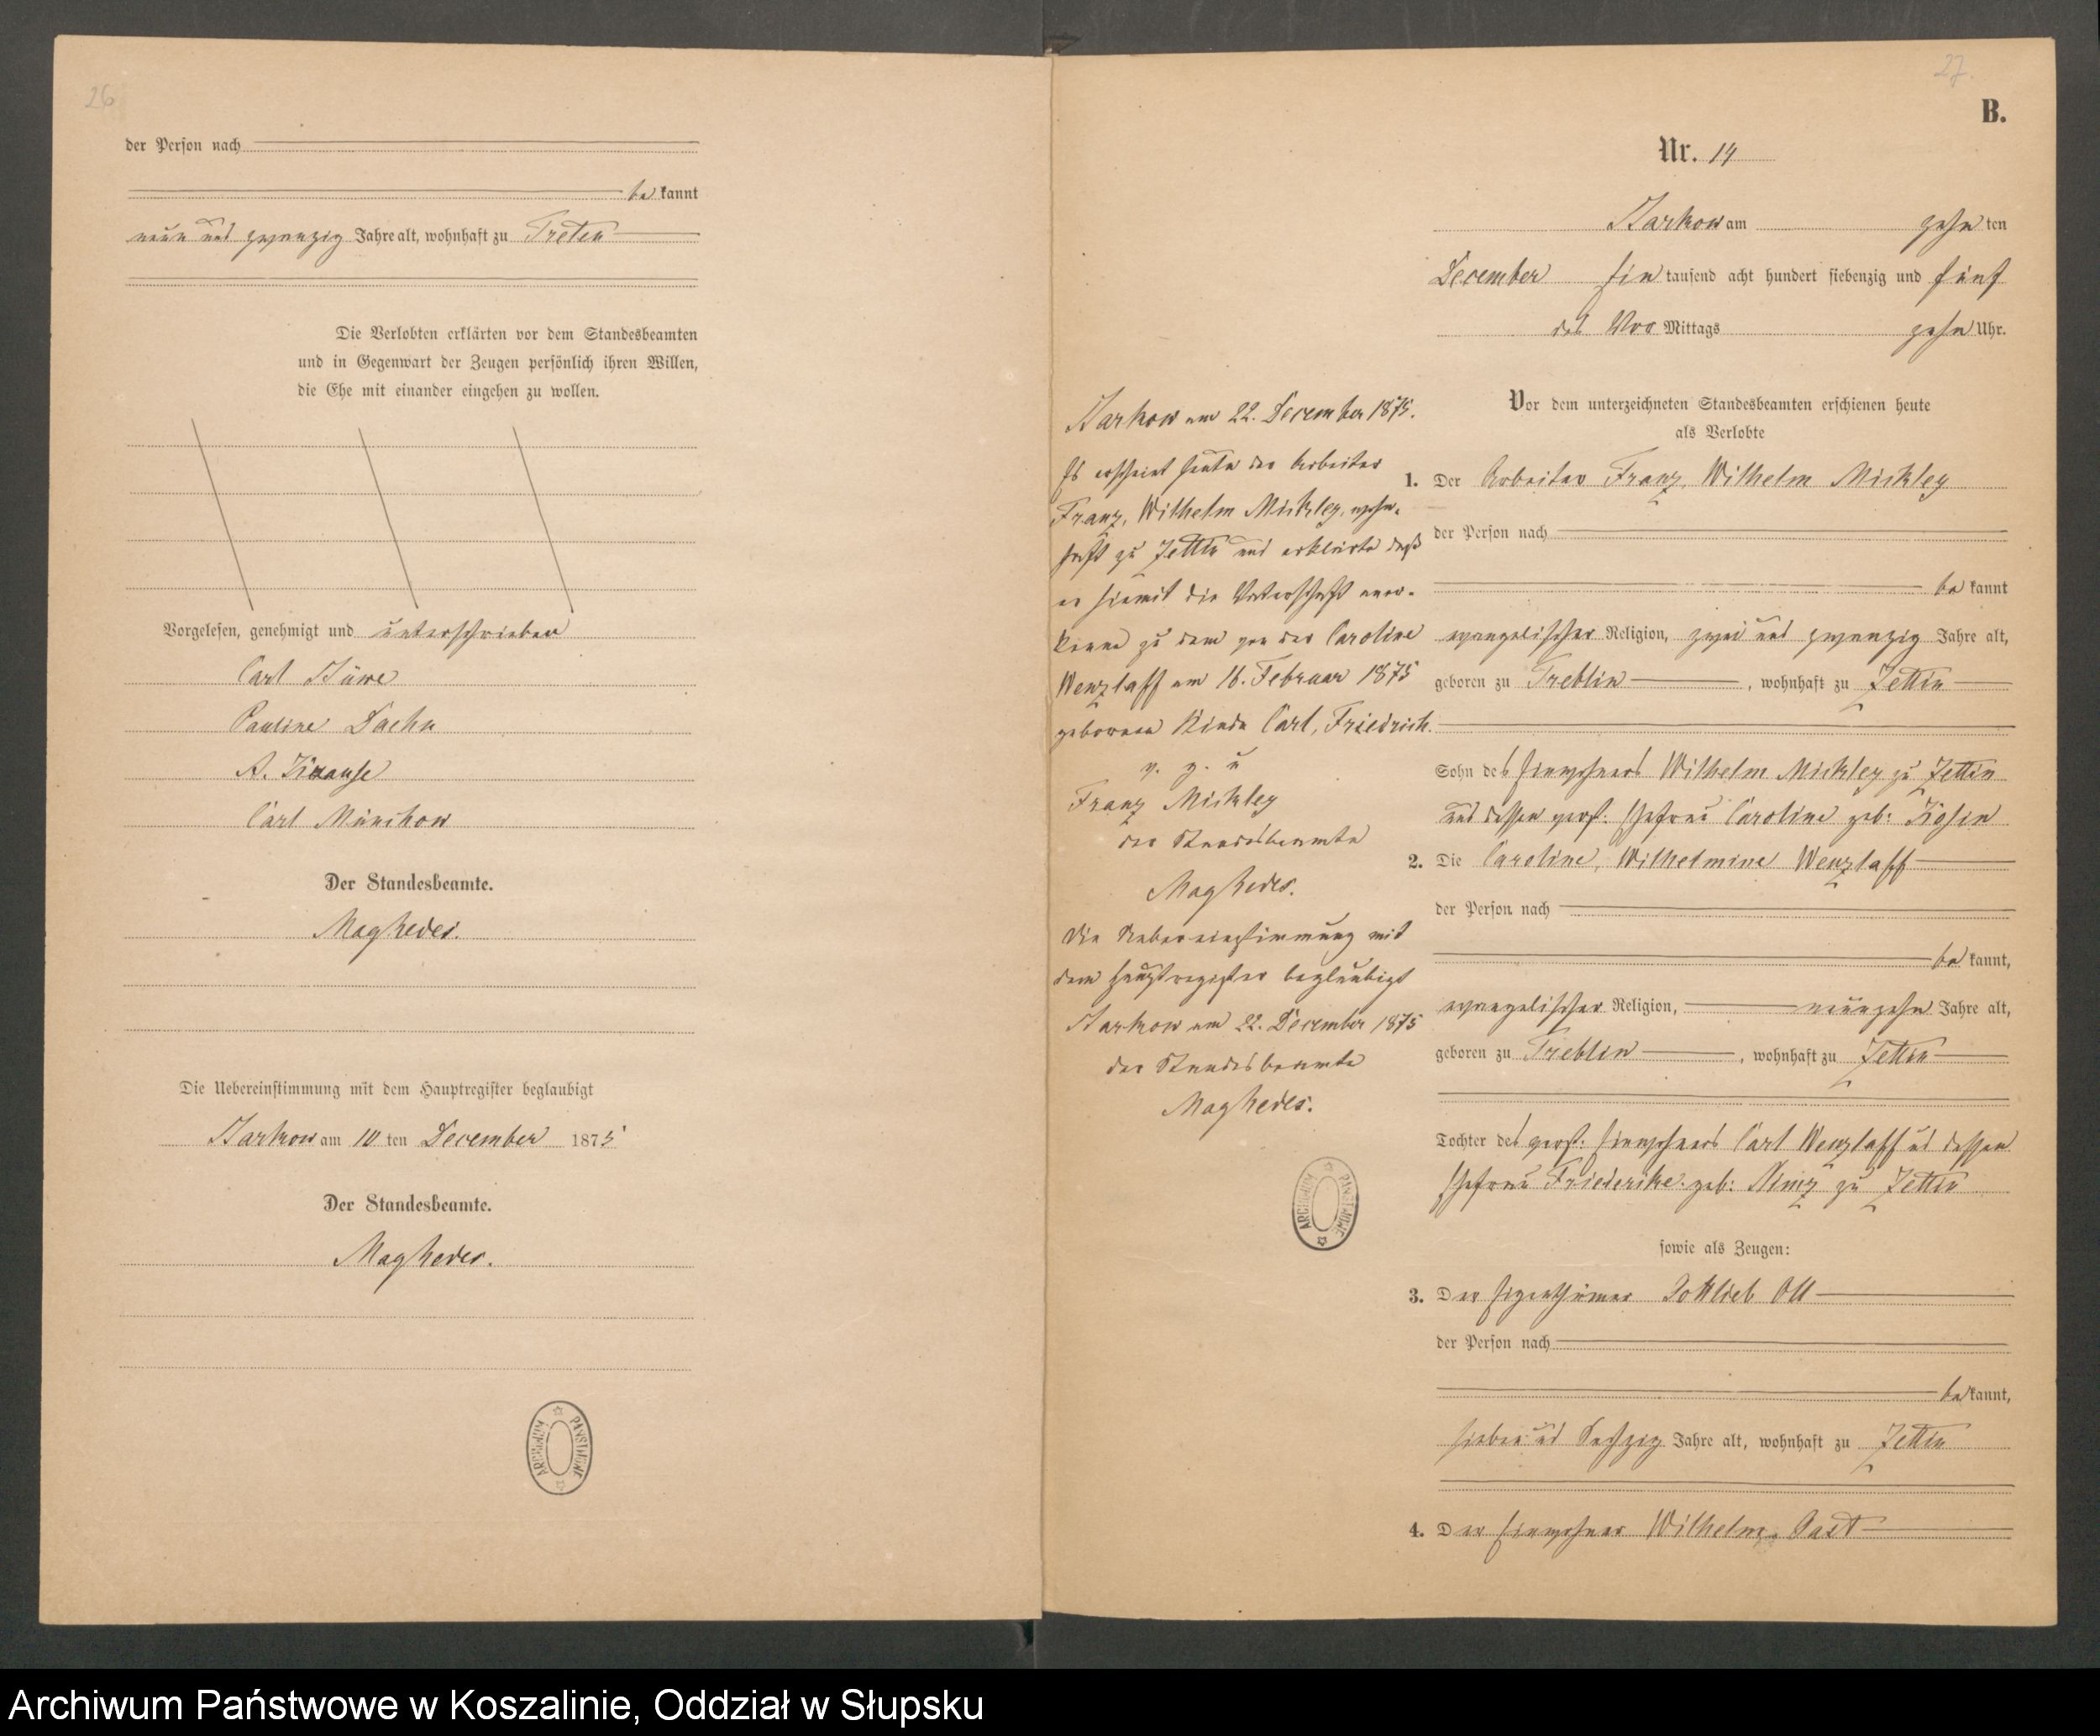 26
der Person nach
be kannt
neun und zwanzig Jahre alt, wohnhaft zu Treten
Die Verlobten erklärten vor dem Standesbeamten
und in Gegenwart der Zeugen persönlich ihren Willen,
die Ehe mit einander eingehen zu wollen.
Vorgelesen, genehmigt und unterschrieben
Carl
Pauline
A. Krause
Carl Münchow
Der Standesbeamte.
Die Uebereinstimmung mit dem Hauptregister beglaubigt
Barkow am 10 ten December 1875
Der Standesbeamte.
ARCHIWUM PAŃSTWOWE
27.
B.
Nr. 14
Barkow am zehn ten
December Ein tausend acht hundert siebenzig und fünf
des Vor Mittags zehn Uhr.
Vor dem unterzeichneten Standesbeamten erschienen heute
als Verlobte
1. Der Arbeiter Franz, Wilhelm Mickley
der Person nach
be kannt
evangelischer Religion, zwei und zwanzig Jahre alt,
geboren zu Treblin, wohnhaft zu Zettin
Sohn des Einwohners Wilhelm Mickley zu Zettin
und dessen verst. Ehefrau Caroline geb.
2. Die Caroline, Wilhelmine Wenzlaff
der Person nach
be kannt,
evangelischer Religion, neunzehn Jahre alt,
geboren zu Treblin, wohnhaft zu Zettin
Tochter des verst. Einwohners Carl Wenzlaff ud dessen
Ehefrau Friederike geb. Nimz zu Zettin
sowie als Zeugen:
3. Der Eigenthümer Gottlieb Ott
der Person nach
be kannt,
sieben ud Sechzig Jahre alt, wohnhaft zu Zettin
4. Der Einwohner Wilhelm Gast
Barkow am 22. December 1875.
Es erscheint heute der Arbeiter
Franz, Wilhelm Mickley, wohn-
haft zu Zettin und erklärte daß
er hiemit die Vaterschaft aner-
kenne zu dem von der Caroline
Wenzlaff am 16. Februar 1875
geborenen Kinde Carl, Friedrich.
v. g. u
Franz Mickley
der Standesbeamte
Die Uebereinstimmung mit
dem Hauptregister beglaubigt
Barkow am 22. December 1875
der Standesbeamte
ARCHIWUM PAŃSTWOWE
Archiwum Państwowe w Koszalinie, Oddział w Słupsku